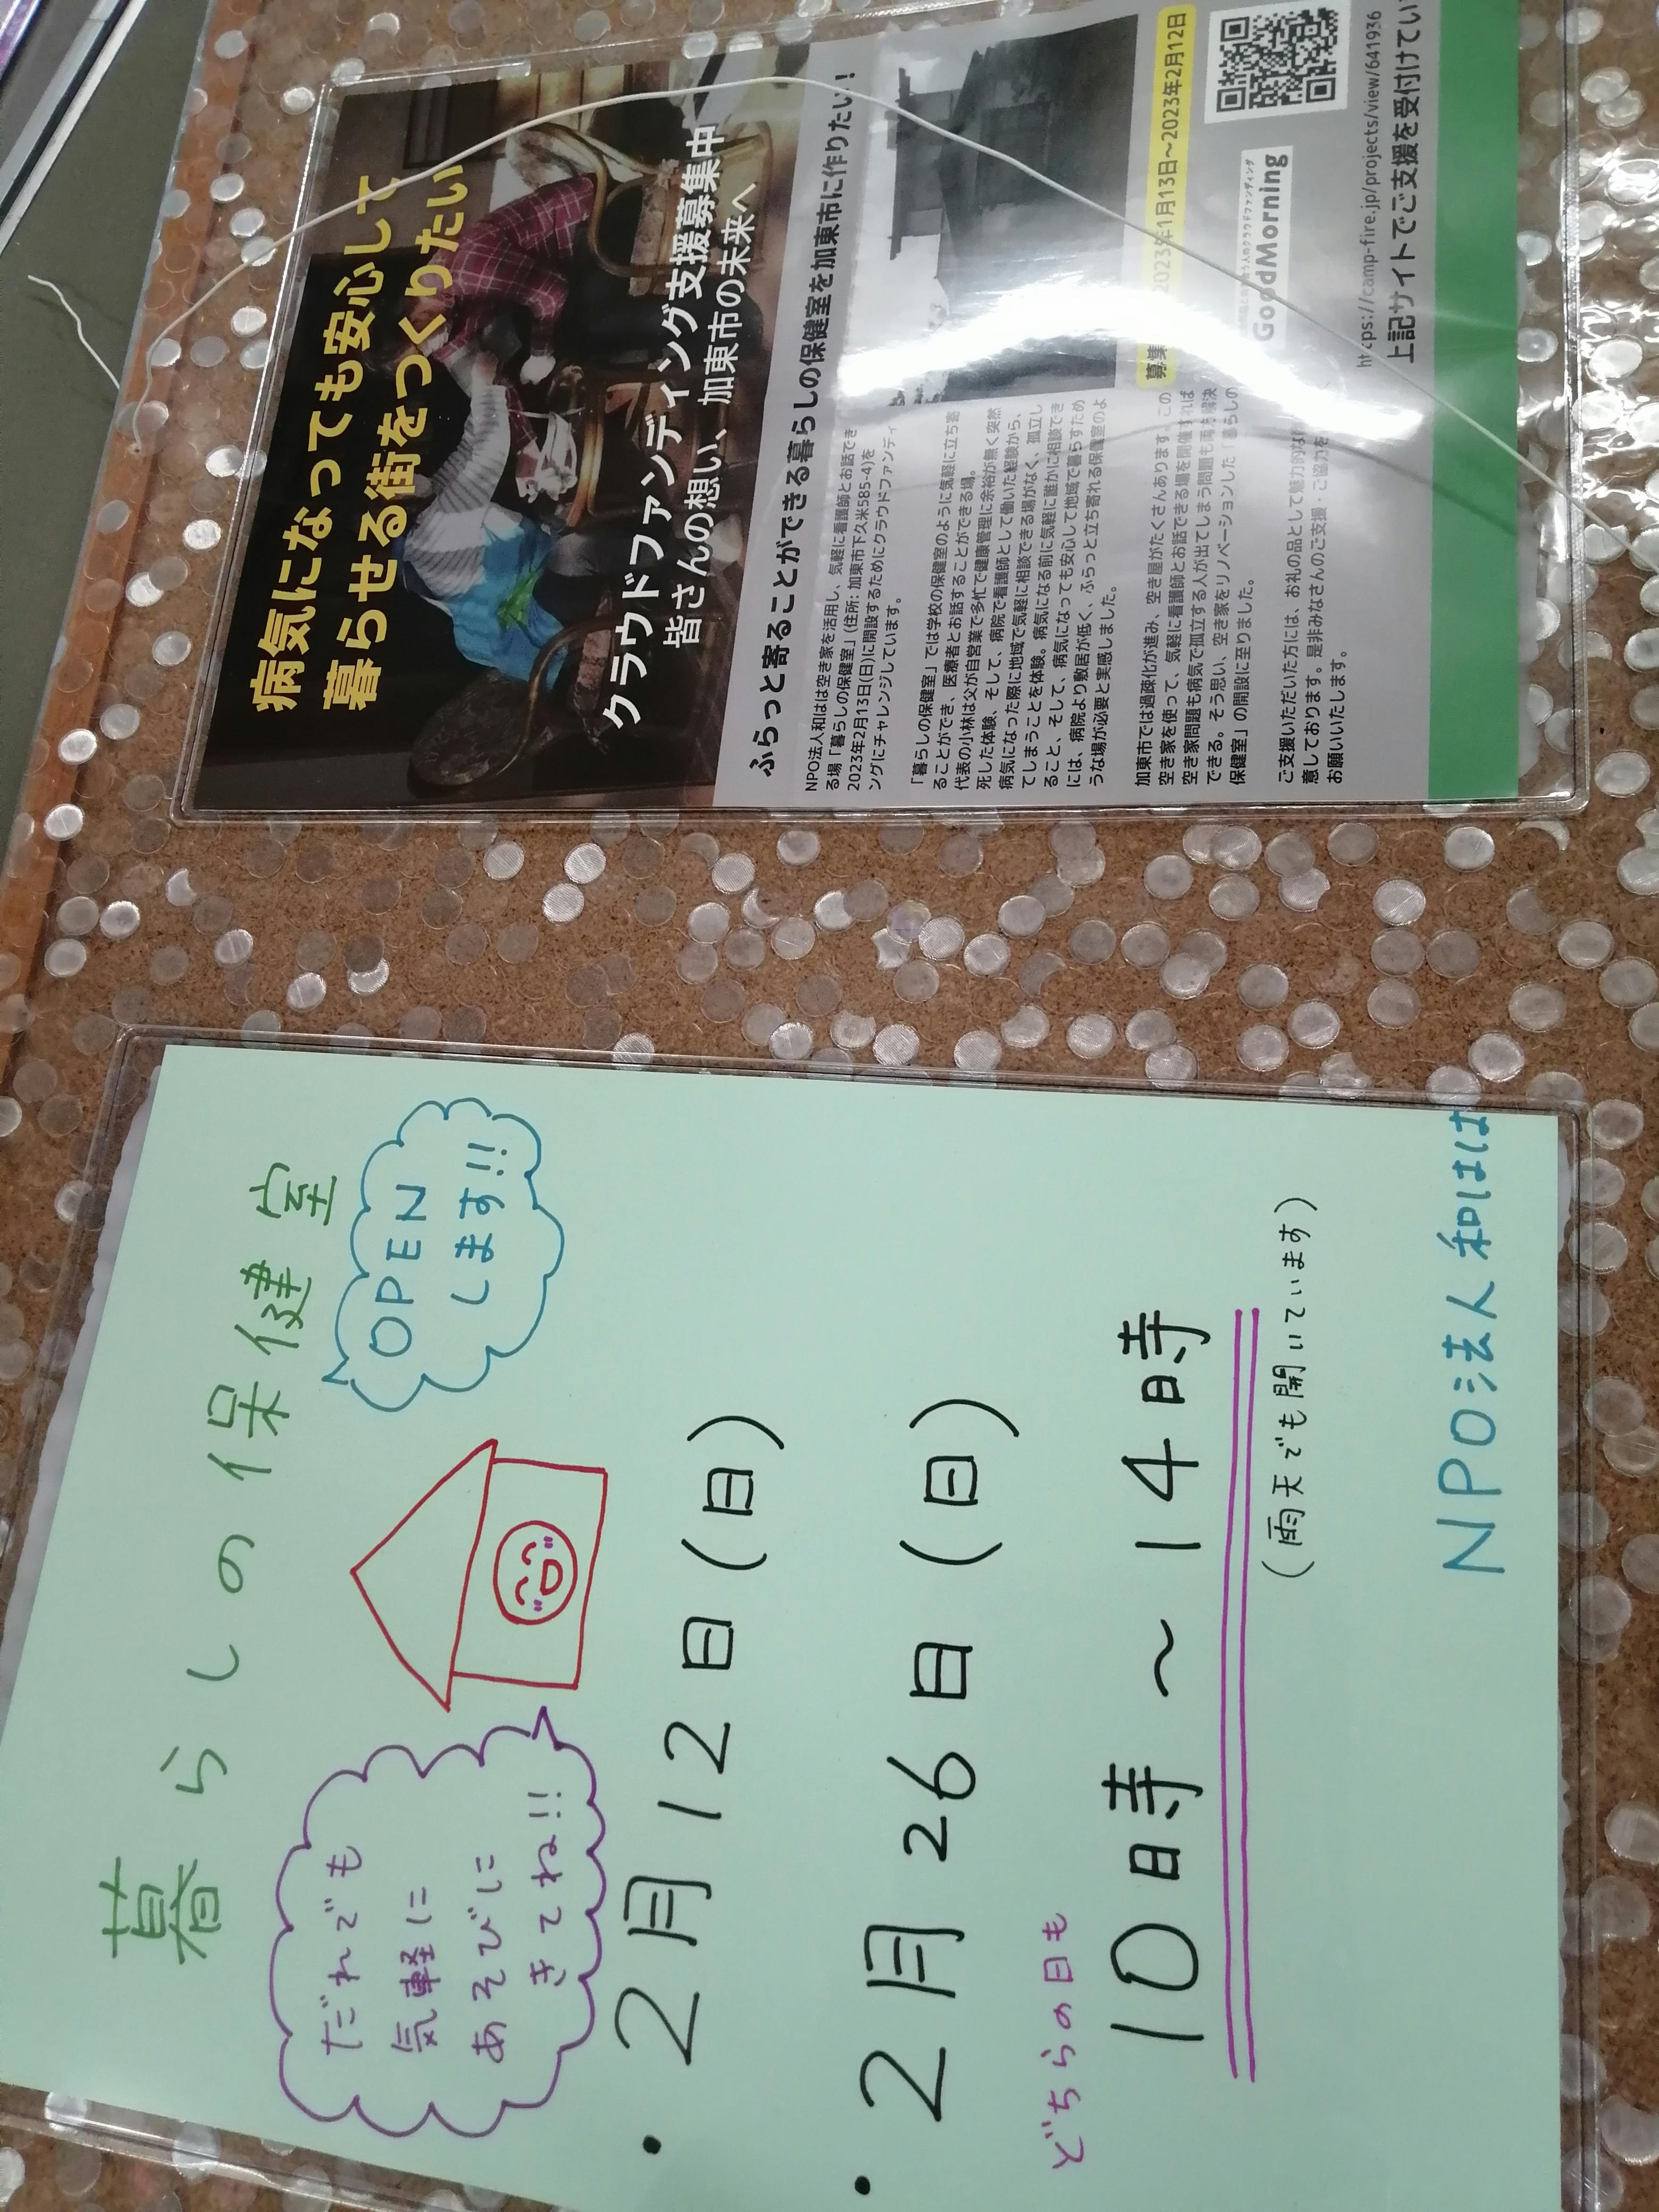 暮らしの保健室
OPEN
します!!
だれでも
気軽に
あそびに
きてね!!
・2月12日(日)
・2月26日(日)
どちらの日も
10時～14時
(雨天でも開いています)
NPO法人和はは
病気になっても安心して
暮らせる街をつくりたい
クラウドファンディング支援募集中
皆さんの想い、加東市の未来へ
ふらっと寄ることができる暮らしの保健室を加東市に作りたい！
NPO法人和ははは空き家を活用し、気軽に看護師とお話でき
る場「暮らしの保健室」(住所：加東市下久米585-4)を
2023年2月13日(日)に開設するためにクラウドファンディ
ングにチャレンジしています。
「暮らしの保健室」では学校の保健室のように気軽に立ち寄
ることができ、医療者とお話することができる場。
代表の小林は父が自営業で多忙で健康管理に余裕が無く突然
死した体験、そして、病院で看護師として働いた経験から、
病気になった際に地域で気軽に相談できる場がなく、孤立し
てしまうことを体験。病気になる前に気軽に誰かに相談でき
ること、そして、病気になっても安心して地域で暮らすため
には、病院より敷居が低く、ふらっと立ち寄れる保健室のよ
うな場が必要と実感しました。
加東市では過疎化が進み、空き屋がたくさんあります。この
空き家を使って、気軽に看護師とお話できる場を開催すれば
空き家問題も病気で孤立する人が出てしまう問題も両方解決
できる。そう思い、空き家をリノベーションした「暮らしの
保健室」の開設に至りました。
ご支援いただいた方には、お礼の品として魅力的な
意しております。是非みなさんのご支援・ご協力を
お願いいたします。
募集 2023年1月13日～2023年2月12日
GoodMorning
https://camp-fire.jp/projects/view/641936
上記サイトでご支援を受付けてい